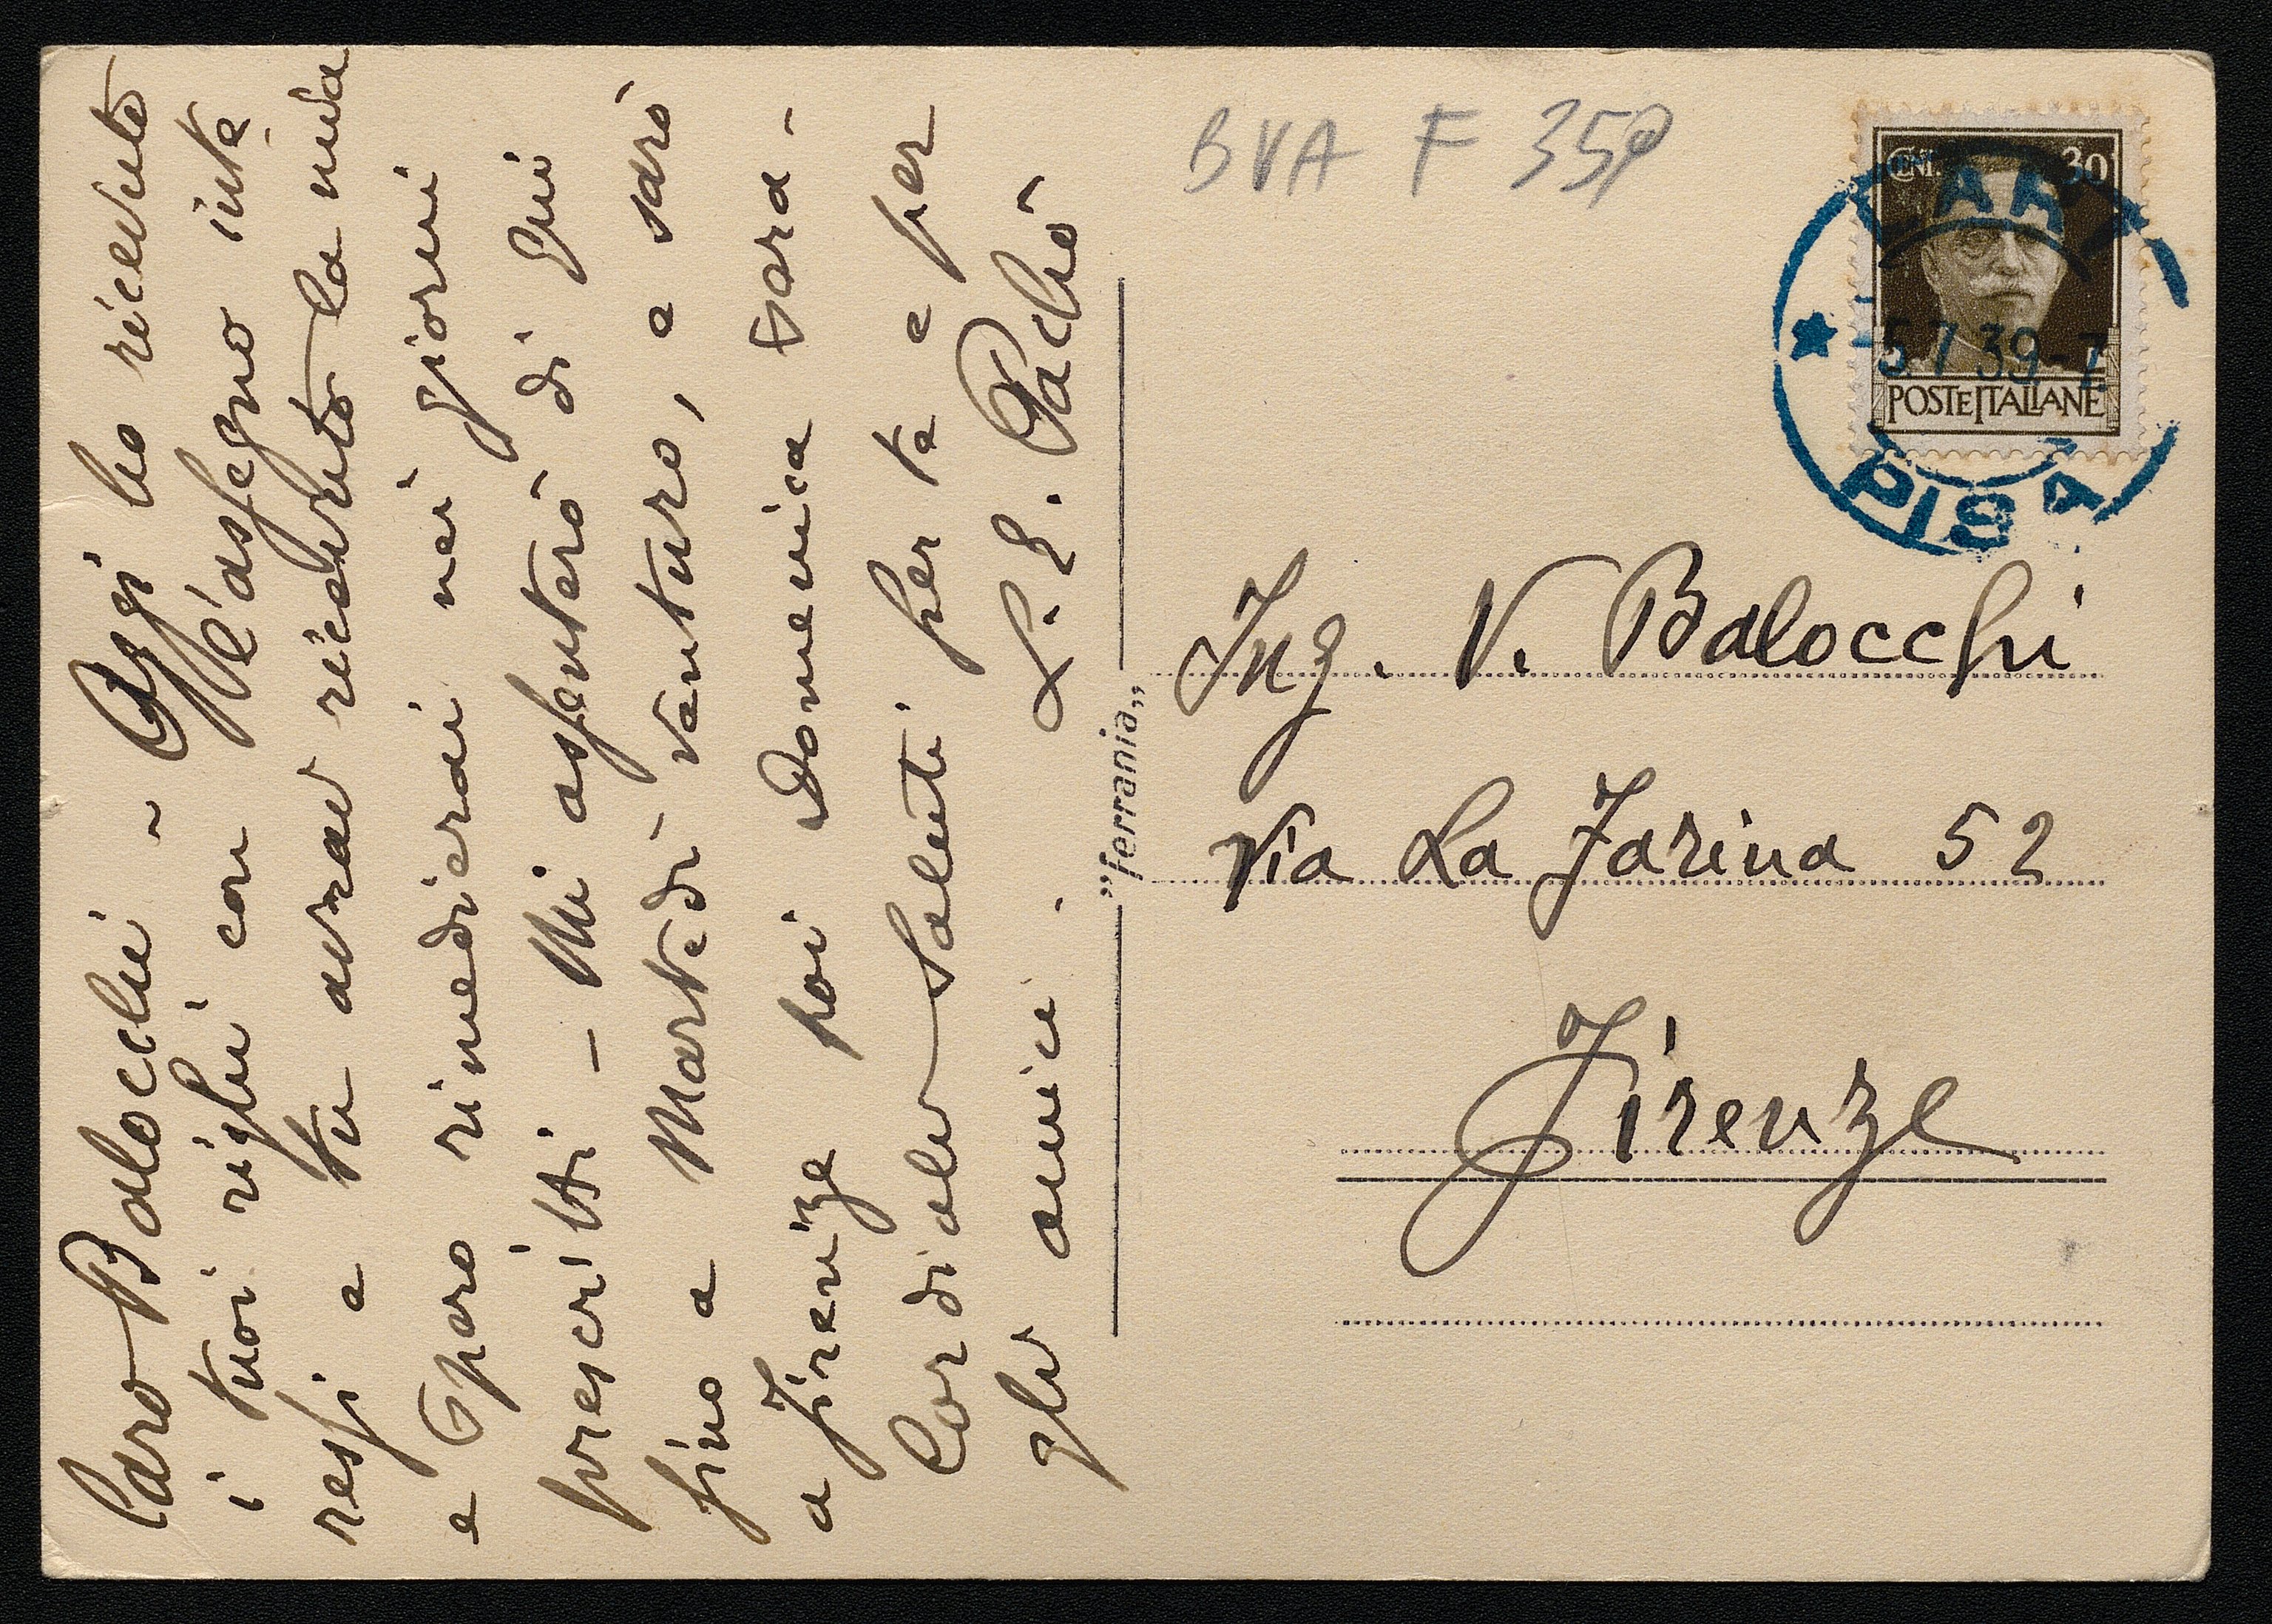 Caro Balocchi - Oggi ho ricevuto
i tuoi righi con l'assegno inte
ressi e tu avrai ricevuto la mia
e spero rimedierai nei giorni
prescritti - Mi assenterò di qui
fino a Martedì venturo, e sarò
a Firenze poi Domenica
Cordiali saluti per te e per
gli amici. L. P. Pachò
BVA F 359
CENT. 30
POSTE ITALIANE
LARI
5.7.39-7
PISA
"Ferrania"
Ing. V. Balocchi
Via La Farina 52
Firenze